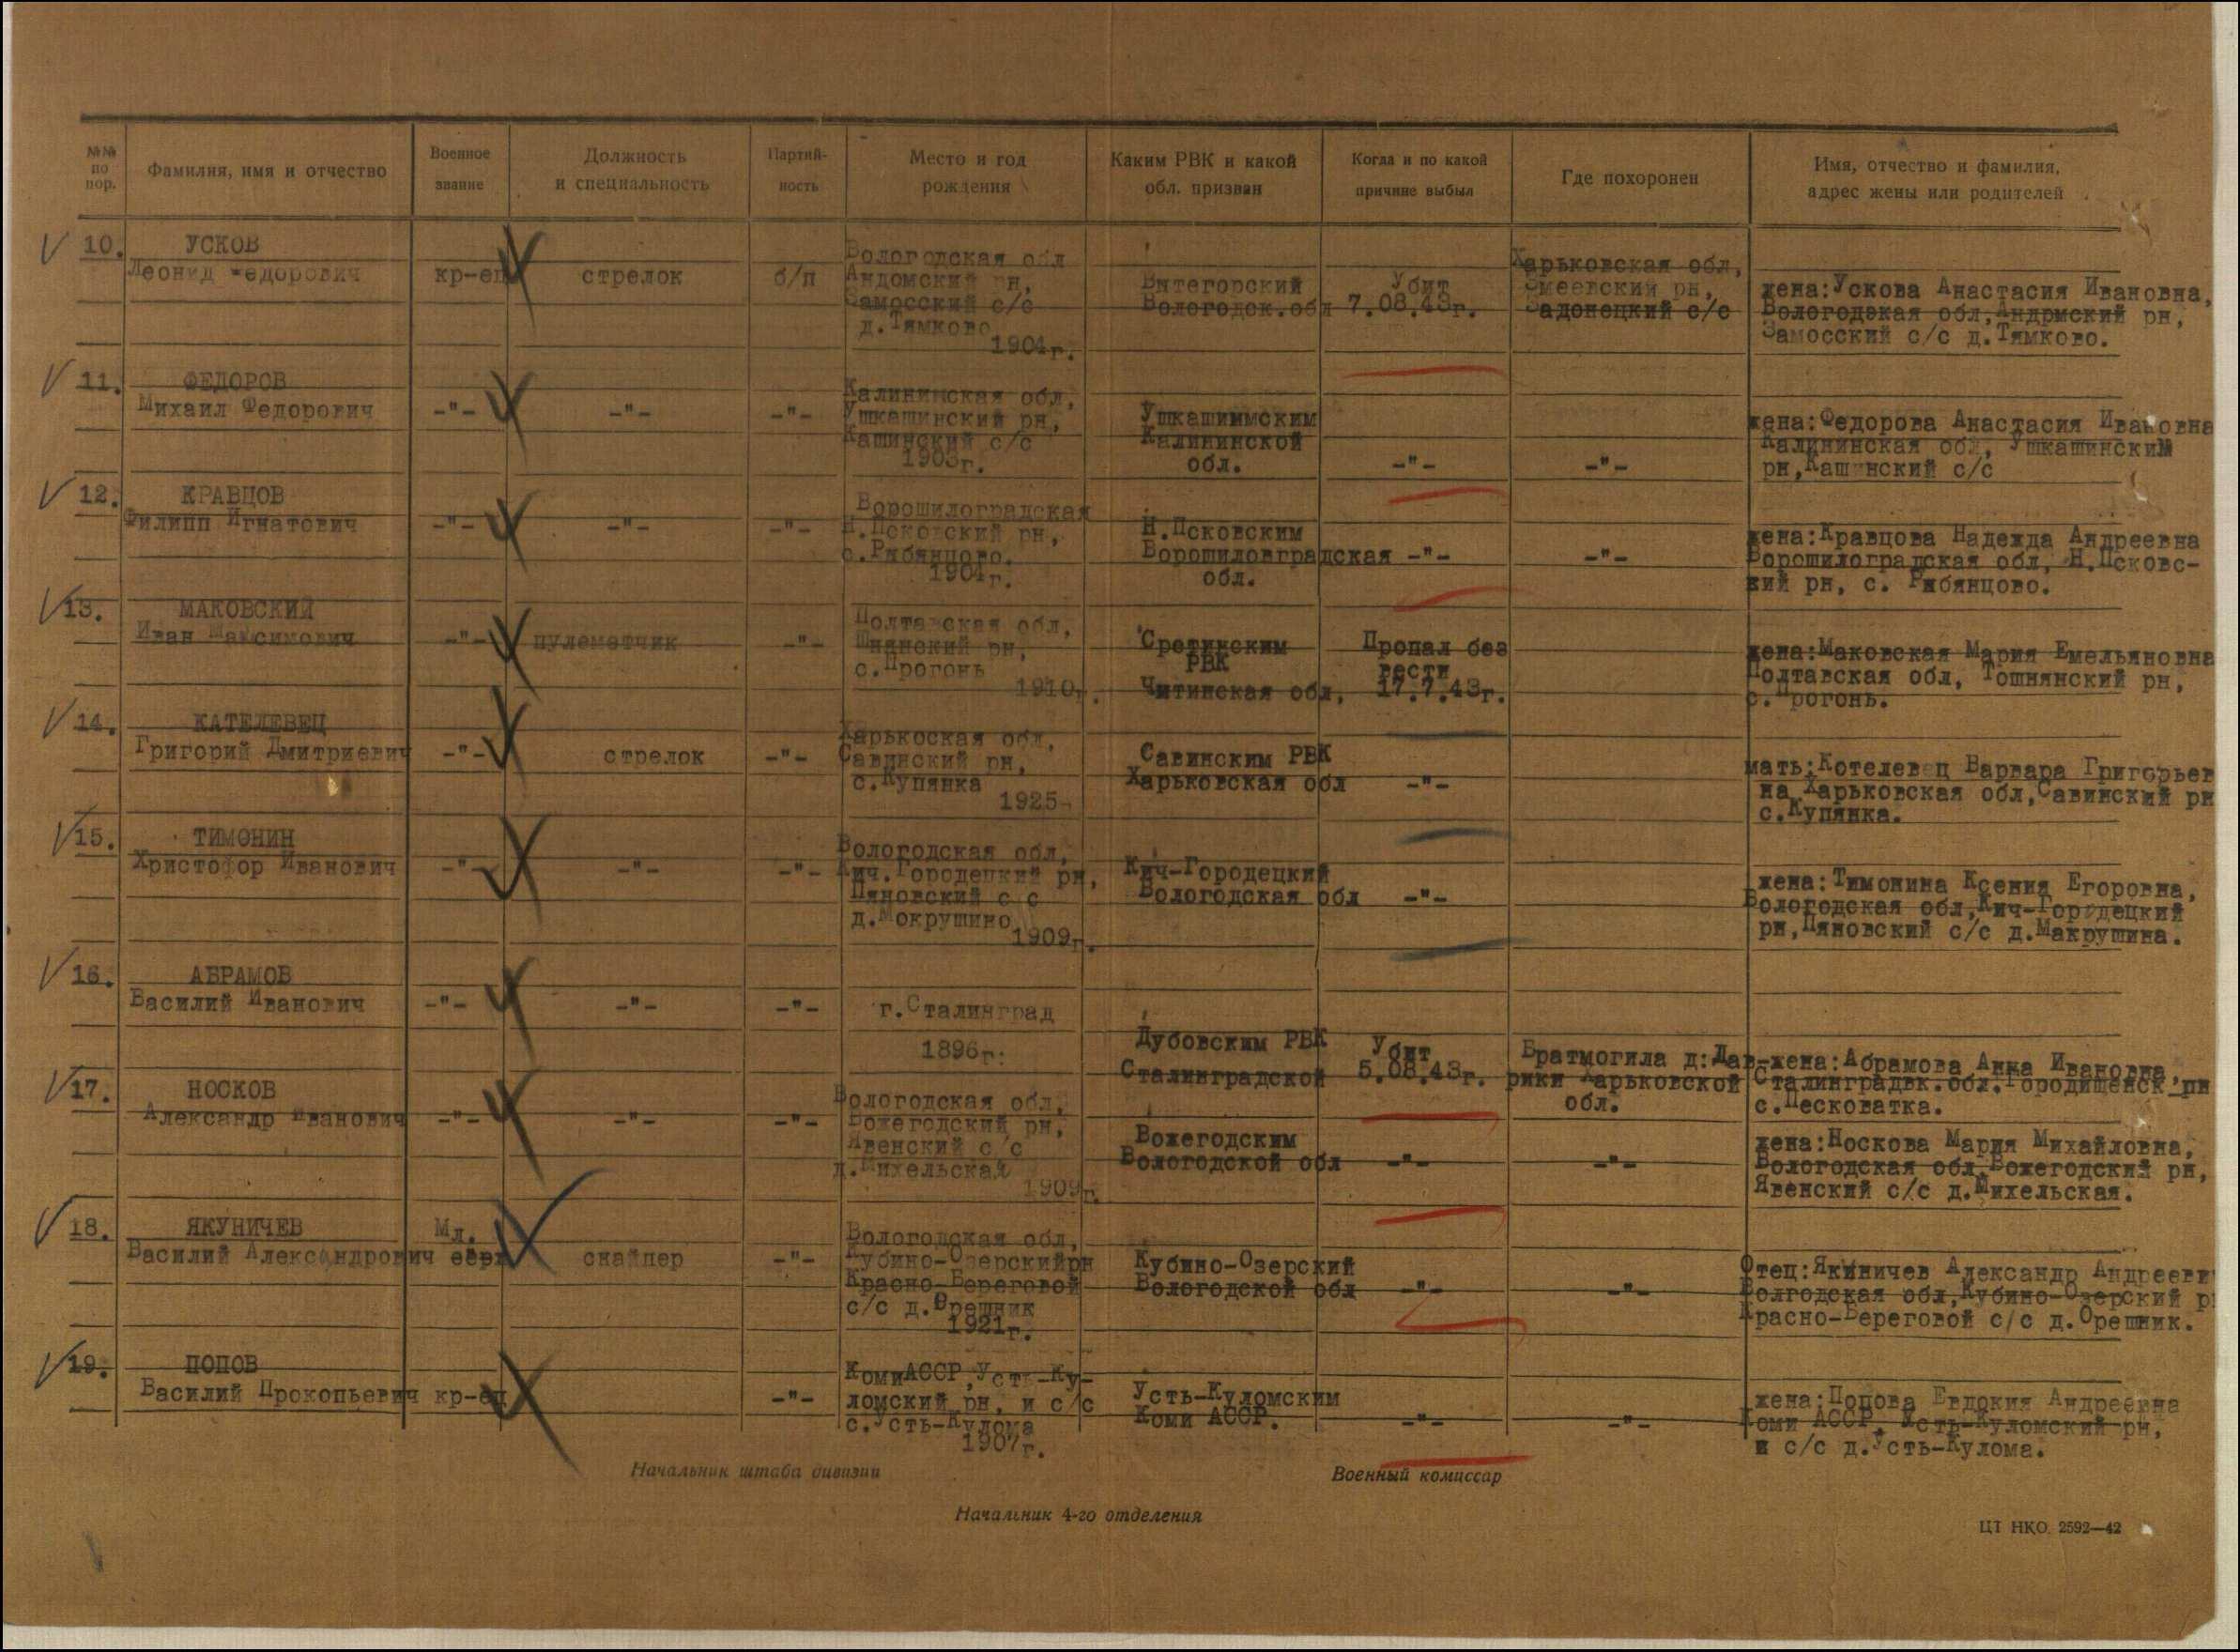 №№ по пор.
Фамилия, имя и отчество
Военное звание
Должность и специальность
Партийность
Место и год рождения
Каким РВК и какой обл. призван
Когда и по какой причине выбыл
Где похоронен
Имя, отчество и фамилия, адрес жены или родителей
10.
УСКОВ
Леонид Федорович
кр-ец
стрелок
б/п
Вологодская обл
Андомский рн,
Замосский с/с
д.Тямково
1904г.
Витегорский
Вологодск.обл
Убит
7.08.43г.
Харьковская обл,
Змеевский рн,
Задонецкий с/с
жена:Ускова Анастасия Ивановна,
Вологодская обл,Андрмский рн,
Замосский с/с д.Тямково.
11.
ФЕДОРОВ
Михаил Федорович
-"-
-"-
-"-
Калининская обл,
Ушкашинский рн,
Кашинский с/с
1903г.
Ушкашиимским
Калининской
обл.
-"-
-"-
жена:Федорова Анастасия Ивановна
Калининская обл, Ушкашинским
рн,Кашинский с/с
12.
КРАВЦОВ
Филипп Игнатович
-"-
-"-
-"-
Ворошилоградская
Н.Псковский рн,
с.Рибянцово.
1904г.
Н.Псковским
Ворошиловградская
обл.
-"-
-"-
жена:Кравцова Надежда Андреевна
Ворошилоградская обл, Н.Псковс-
кий рн, с. Рибянцово.
13.
МАКОВСКИЙ
Иван Максимович
-"-
пулеметчик
-"-
Полтавская обл,
Шнянский рн,
с.Прогонь
1910г.
Сретинским
РВК
Читинская обл,
Пропал без
вести
17.7.43г.
жена:Маковская Мария Емельяновна
Полтавская обл, Тошнянский рн,
с.Прогонь.
14.
КАТЕЛЕВЕЦ
Григорий Дмитриевич
-"-
стрелок
-"-
Харькоская обл,
Савинский рн,
с.Купянка
1925-
Савинским РВК
Харьковская обл
-"-
мать:Котелевец Варвара Григорьев
на Харьковская обл,Савинский рн
с.Купянка.
15.
ТИМОНИН
Христофор Иванович
-"-
-"-
-"-
Вологодская обл,
Кич.Городецкий рн,
Пяновский с с
д.Мокрушино
1909г.
Кич-Городецкий
Вологодская обл
-"-
жена:Тимонина Ксения Егоровна,
Вологодская обл,Кич-Городецкий
рн,Пяновский с/с д.Макрушина.
16.
АБРАМОВ
Василий Иванович
-"-
-"-
-"-
г.Сталинград
1896г.
Дубовским РВК
Сталинградской
Убит
5.08.43г.
Братмогила д:Лав-
рики Харьковской
обл.
жена:Абрамова Анна Ивановна,
Сталинградвк.обл.Городищенск.рн
с.Песковатка.
17.
НОСКОВ
Александр Иванович
-"-
-"-
-"-
Вологодская обл,
Вожегодский рн,
Явенский с/с
д.Михельская
1909г.
Вожегодским
Вологодской обл
-"-
-"-
жена:Носкова Мария Михайловна,
Вологодская обл,Вожегодский рн,
Явенский с/с д.Михельская.
18.
ЯКУНИЧЕВ
Василий Александрович
Мл.
серж
снайпер
-"-
Вологодская обл,
Кубино-Озерскийрн
Красно-Береговой
с/с д.Орешник
1921г.
Кубино-Озерский
Вологодской обл
-"-
-"-
Отец:Якиничев Александр Андрееви
Волгодская обл,Кубино-Озерский р
Красно-Береговой с/с д.Орешник.
19.
ПОПОВ
Василий Прокопьевич
кр-ец
-"-
КомиАССР,Усть-Ку-
ломский рн, и с/с
с.Усть-Кулома
1907г.
Усть-Куломским
Коми АССР.
-"-
-"-
жена:Попова Евдокия Андреевна
Коми АССР, Усть-Куломский рн,
и с/с д.Усть-Кулома.
Начальник штаба дивизии
Военный комиссар
Начальник 4-го отделения
ЦТ НКО. 2592—42